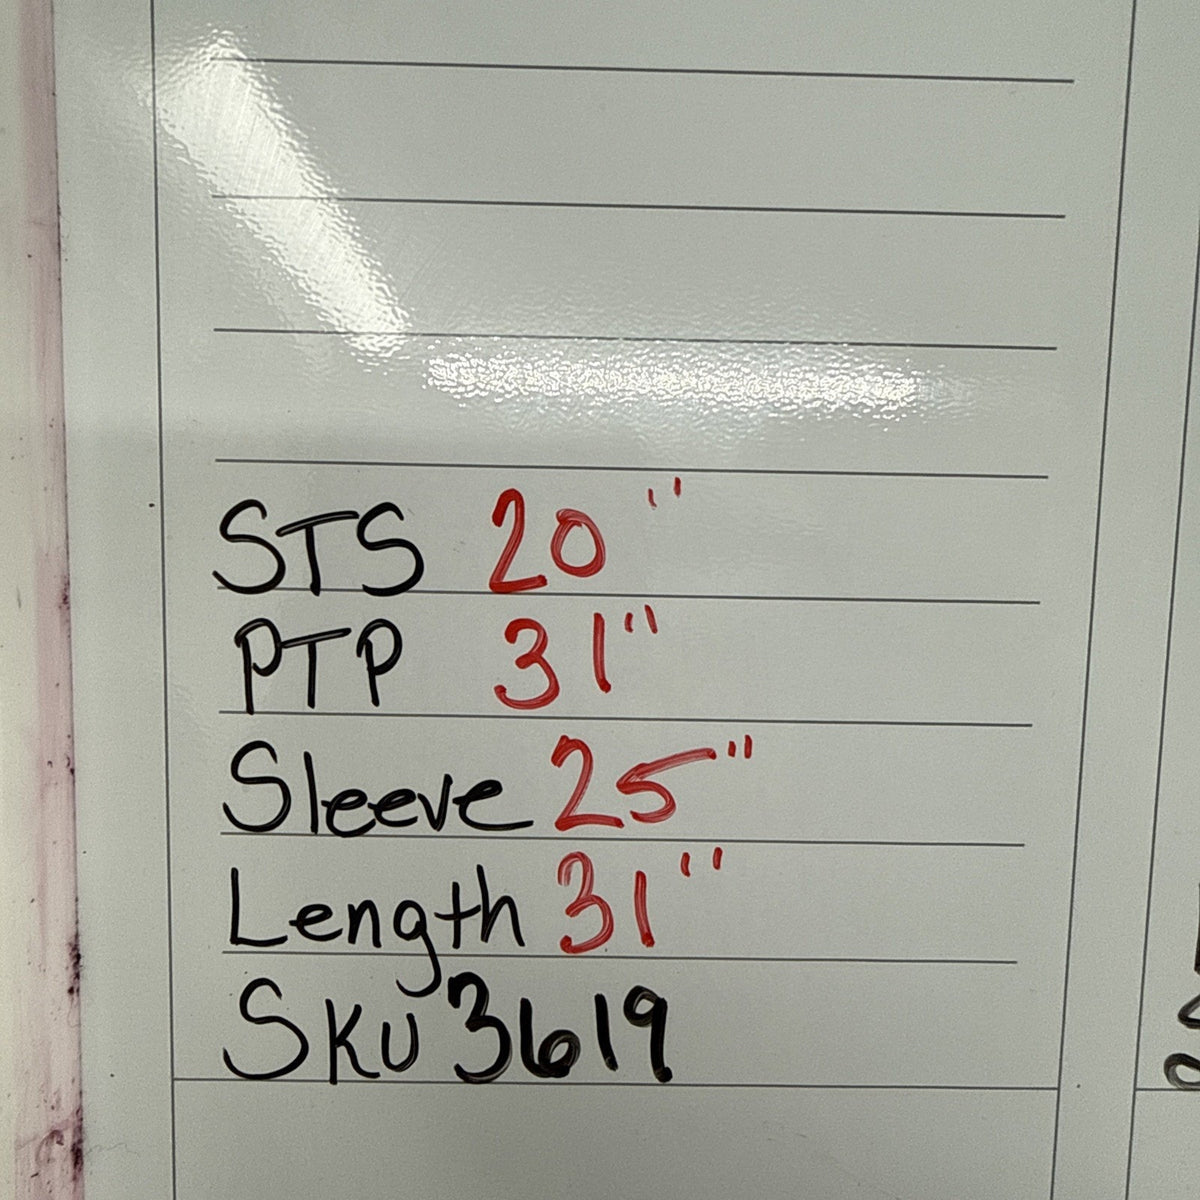 STS 20"
PTP 31"
Sleeve 25"
Length 31"
SKU 3619